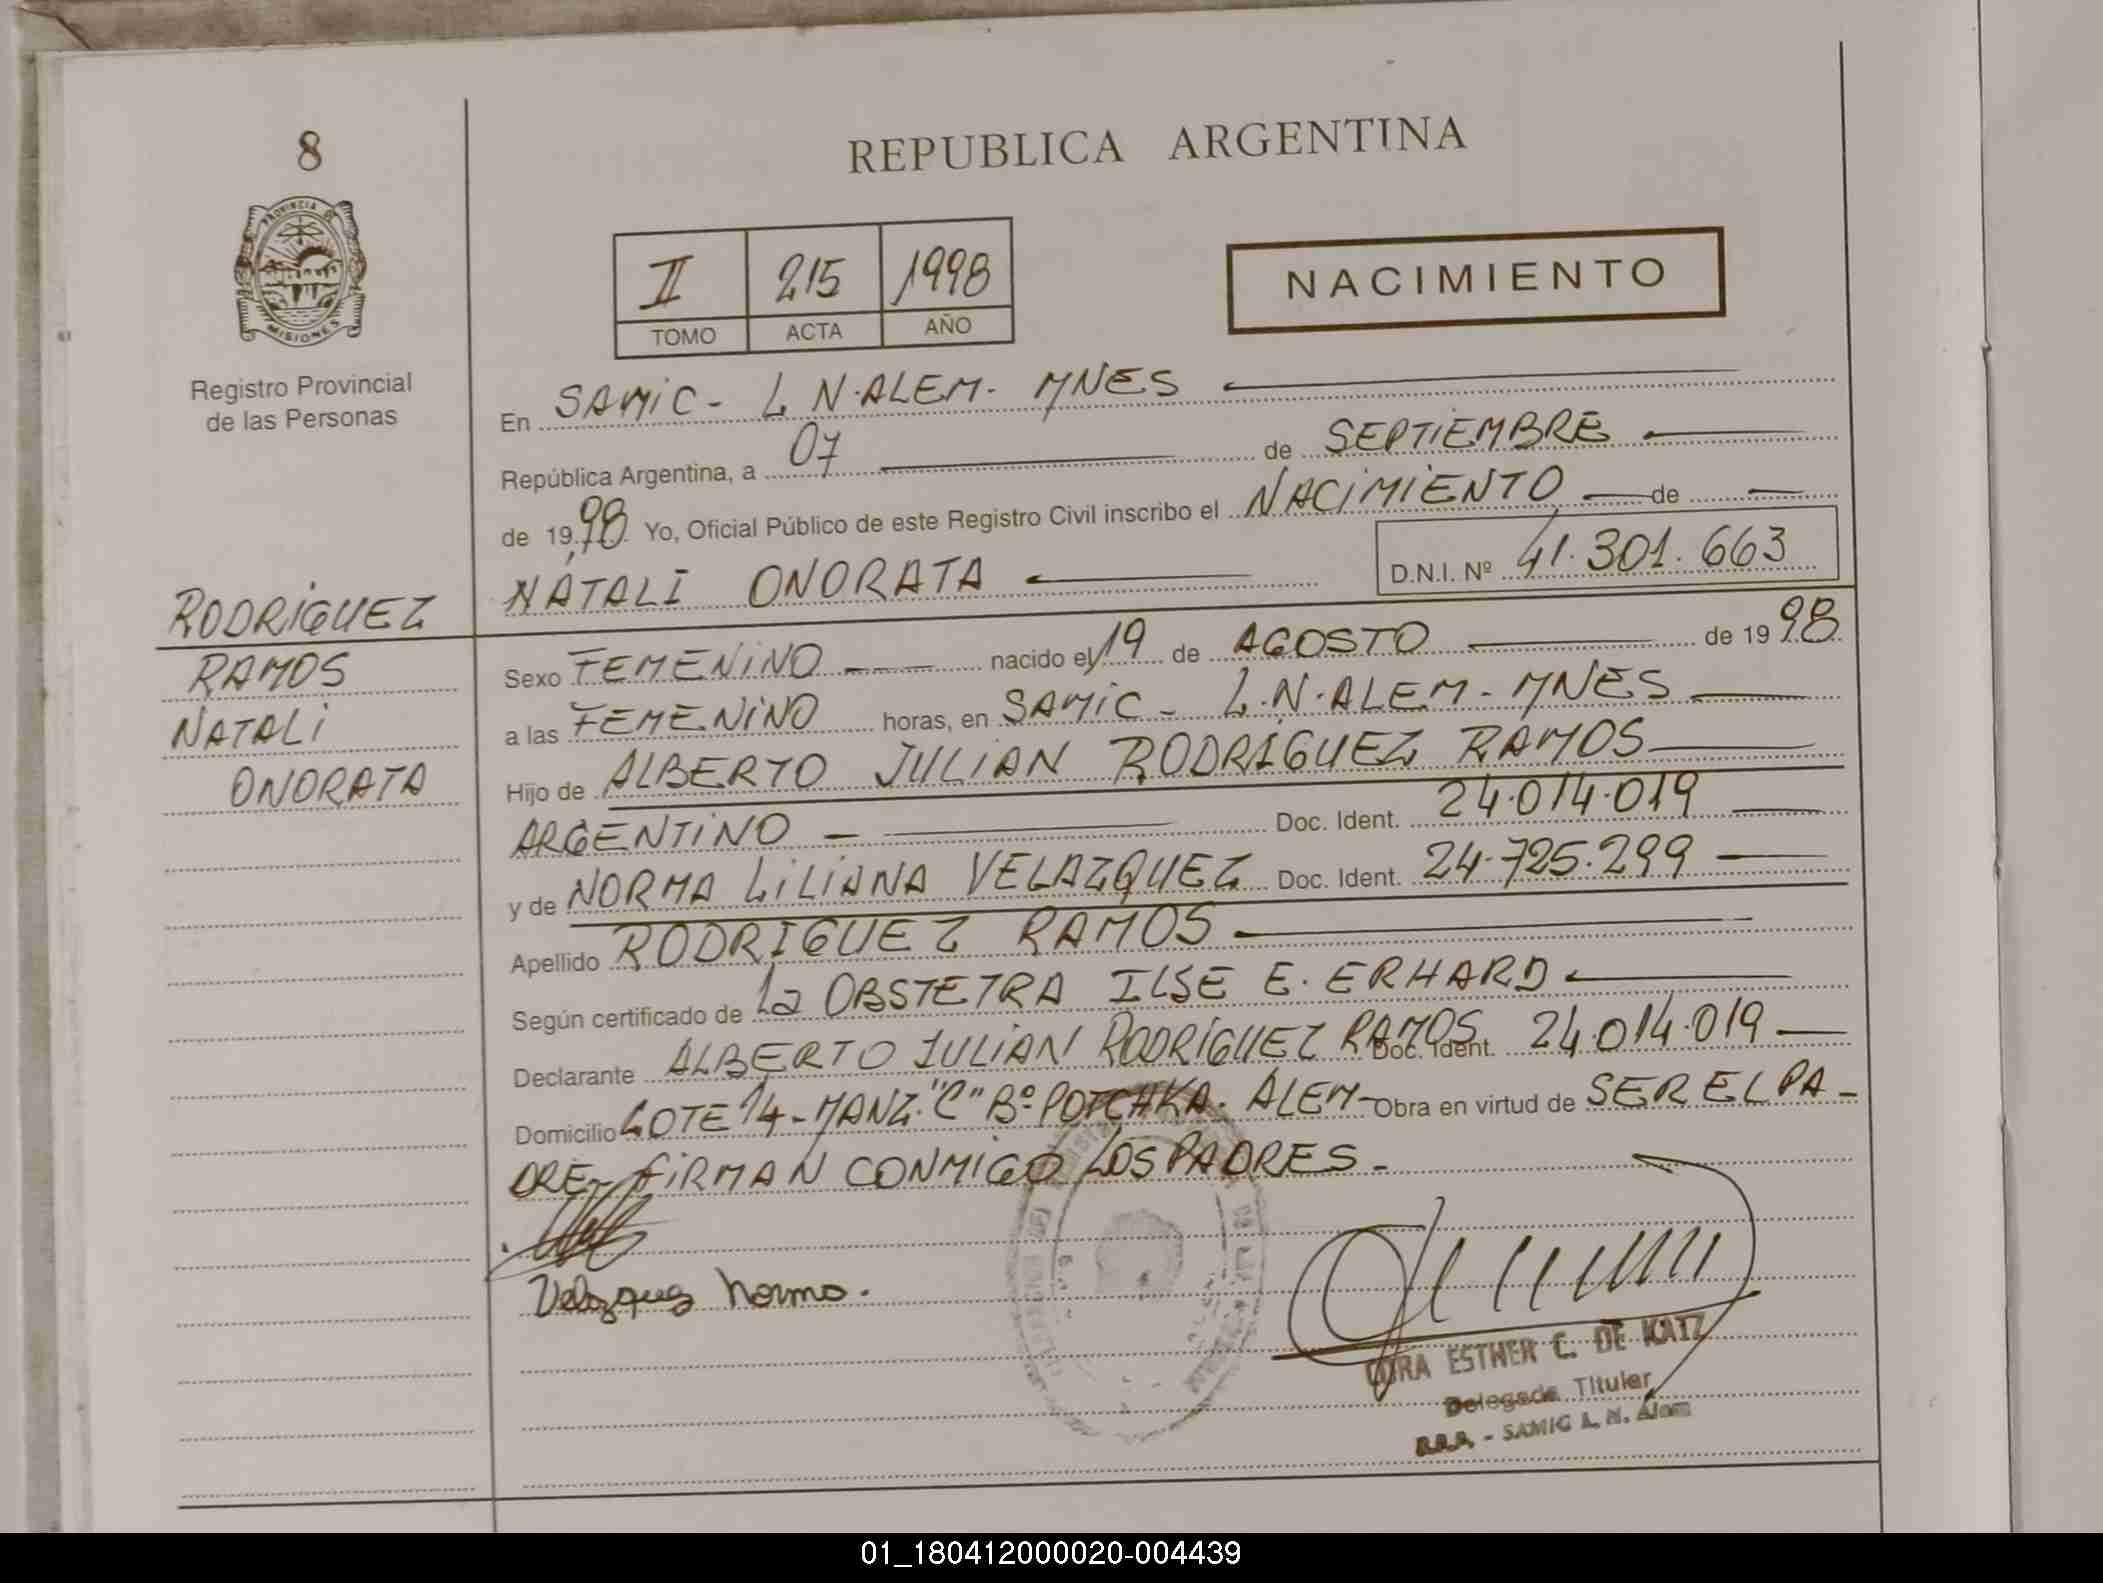 8
PROVINCIA DE
MISIONES
Registro Provincial
de las Personas
RODRIGUEZ
RAMOS
NATALI
ONORATA
REPUBLICA ARGENTINA
II 215 1998
TOMO ACTA AÑO
NACIMIENTO
En SAMIC - L N. ALEM - MNES
República Argentina, a 07 de SEPTIEMBRE
de 1998 Yo, Oficial Público de este Registro Civil inscribo el NACIMIENTO de
NATALI ONORATA D.N.I. Nº 41.301.663
Sexo FEMENINO nacido el 19 de AGOSTO de 1998
a las FEMENINO horas, en SAMIC - L.N. ALEM - MNES
Hijo de ALBERTO JULIAN RODRIGUEZ RAMOS
ARGENTINO Doc. Ident. 24.014.019
y de NORMA LILIANA VELAZQUEZ Doc. Ident. 24.725.299
Apellido RODRIGUEZ RAMOS
Según certificado de La OBSTETRA ILSE E. ERHARD
Declarante ALBERTO JULIAN RODRIGUEZ RAMOS Doc. Ident. 24.014.019
Domicilio LOTE 14 - MANZ. "C" Bº POTCHKA. ALEM - Obra en virtud de SER EL PA-
DRE - FIRMAN CONMIGO LOS PADRES -
Velazquez Norma.
ESTHER C. DE KATZ
Delegada Titular
R.P.P. - SAMIC L. N. Alem
01_180412000020-004439